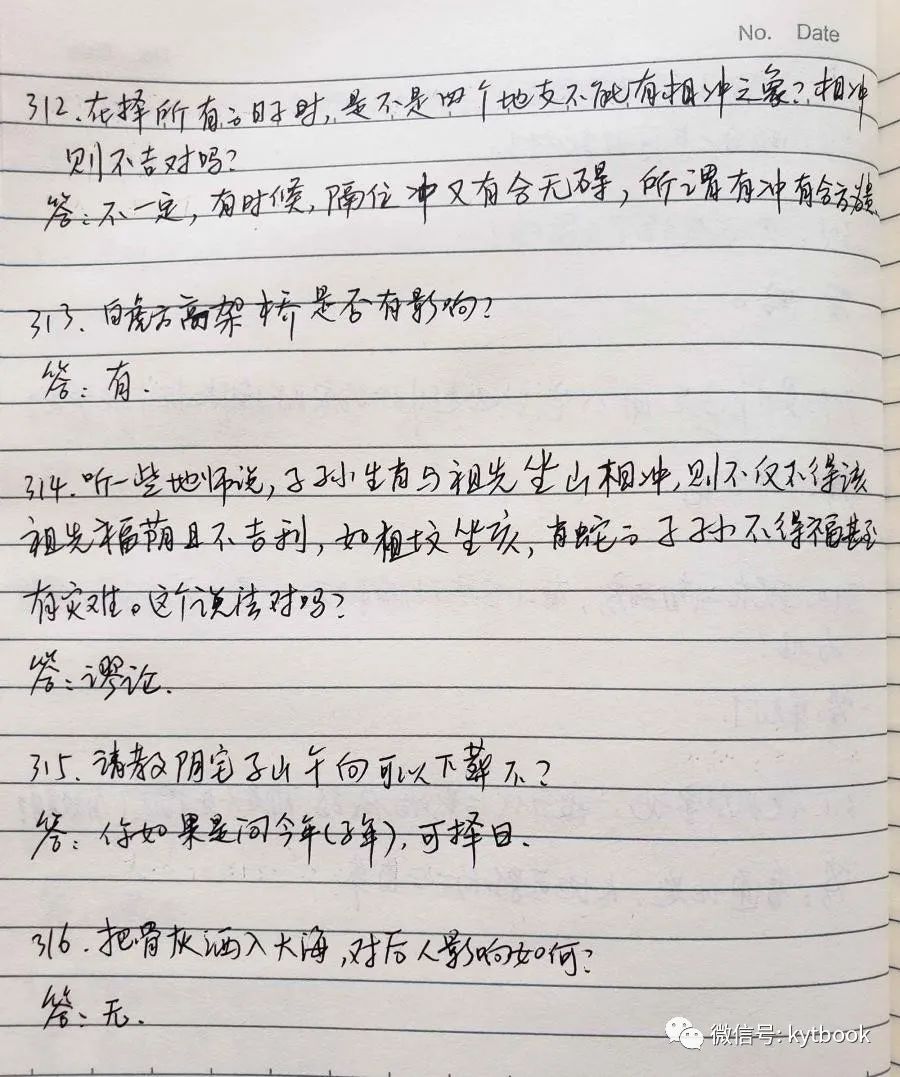 No. Date
312.在择所有的日子时,是不是四个地支不能有相冲之象?相冲
则不吉对吗?
答:不一定,有时候,隔位冲又有合无碍,所谓有冲有合方为贵.
313.白虎方高架桥是否有影响?
答:有.
314.听一些地师说,子孙生肖与祖先坐山相冲,则不仅不得该
祖先福荫且不吉利,如祖坟坐亥,肖蛇的子孙不得福甚至
有灾难。这个说法对吗?
答:谬论.
315.请教阴宅子山午向可以下葬不?
答:你如果是问今年(子年),可择日.
316.把骨灰洒入大海,对后人影响如何?
答:无.
微信号: kytbook